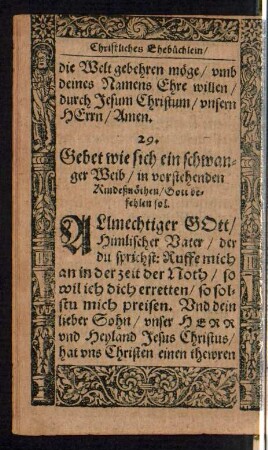 Christliches Ehebüchlein/
die Welt gebehren möge/ vmb
deines Namens Ehre willen/
durch Jesum Christum/ vnsern
HErrn/ Amen.
29.
Gebet wie sich ein schwan-
ger Weib/ in vorstehenden
Kindeßnöthen/ Gott be-
fehlen sol.
ALlmechtiger GOtt/
Himlischer Vater/ der
du sprichst: Ruffe mich
an in der zeit der Noth/ so
wil ich dich erretten/ so sol-
stu mich preisen. Vnd dein
lieber Sohn/ vnser HERR
vnd Heyland Jesus Christus/
hat vns Christen einen thewren